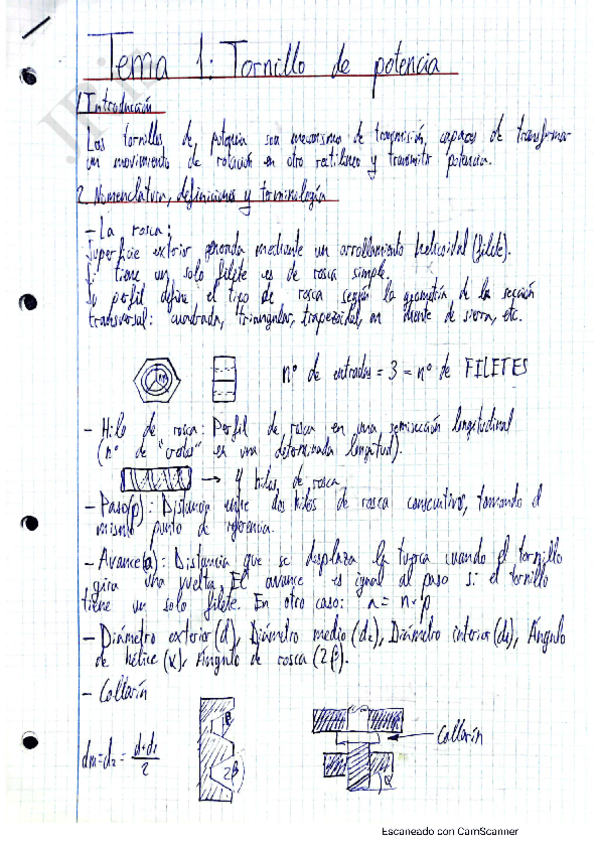 Tema 1: Tornillo de potencia
1. Introducción
Los tornillos de potencia son mecanismos de transmisión, capaces de transformar
un movimiento de rotación en otro rectilíneo y transmitir potencia.
2. Nomenclatura, definiciones y terminología
- La rosca:
Superficie exterior generada mediante un arrollamiento helicoidal (filete).
Si tiene un solo filete es de rosca simple.
Su perfil define el tipo de rosca según la geometría de la sección
transversal: cuadrada, triangular, trapezoidal, en diente de sierra, etc.
nº de entradas = 3 = nº de FILETES
- Hilo de rosca: Perfil de rosca en una semisección longitudinal
(nº de "crestas" en una determinada longitud).
→ 4 hilos de rosca
- Paso(p): Distancia entre dos hilos de rosca consecutivos, tomando el
mismo punto de referencia.
- Avance(a): Distancia que se desplaza la tuerca cuando el tornillo
gira una vuelta. El avance es igual al paso si el tornillo
tiene un solo filete. En otro caso: a = n · p
- Diámetro exterior (d), Diámetro medio (d2), Diámetro interior (d1), Ángulo
de hélice (α), Ángulo de rosca (2β).
- Collarín
dm = d2 = d+d1 / 2
β
2β
Collarín
α
Escaneado con CamScanner